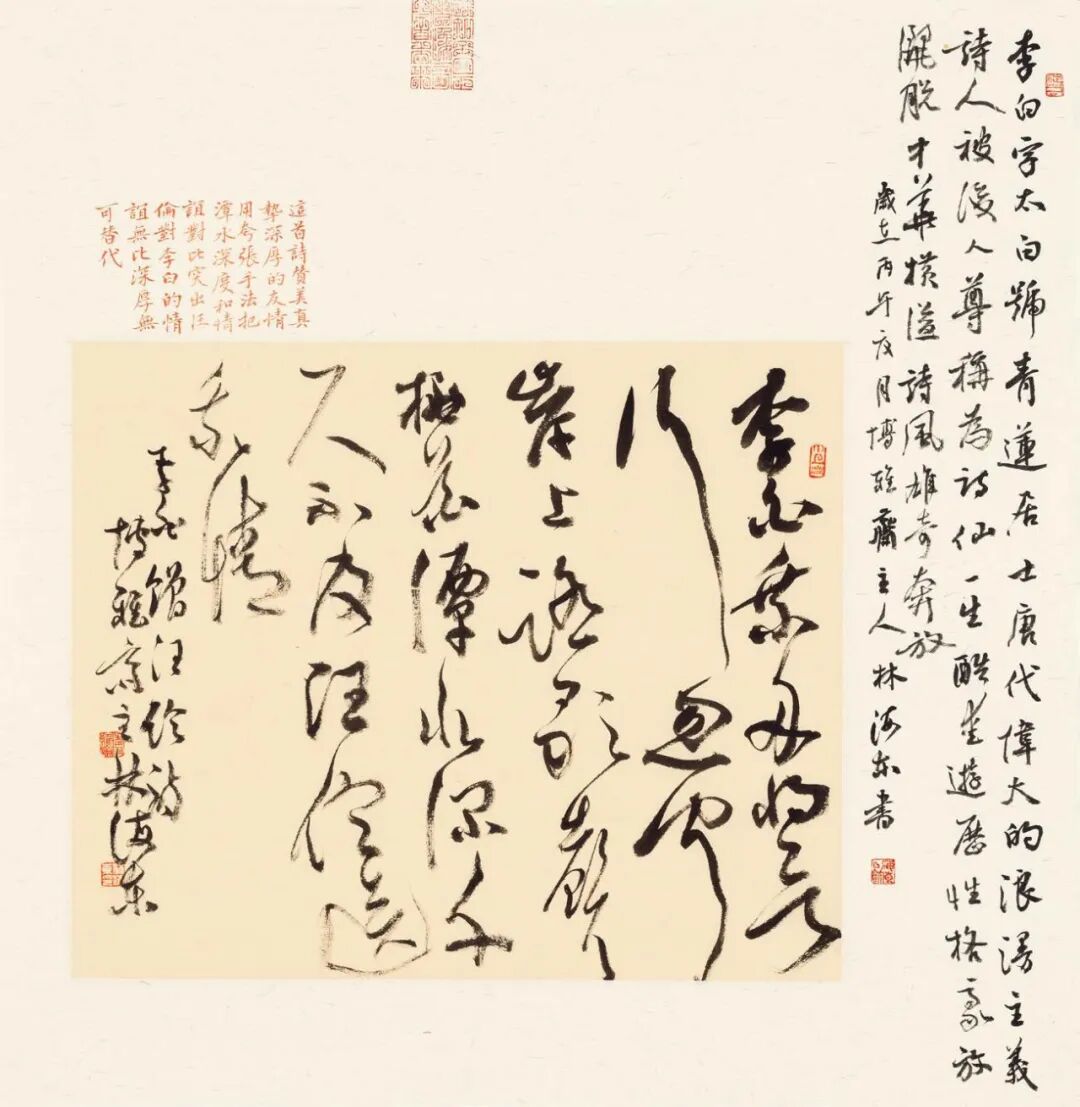 李白字太白號青蓮居士唐代偉大的浪漫主義
詩人被後人尊稱為詩仙一生酷爱遊歷性格豪放
灑脱才華横溢詩風雄奇奔放
歲在丙午夏月博雅齋主人林海东書
這首詩贊美真
摯深厚的友情
用夸張手法把
潭水深度和情
誼對比突出汪
倫對李白的情
誼無比深厚無
可替代
李白乘舟将欲
行忽闻
岸上踏歌聲
桃花潭水深千
尺不及汪倫送
我情
李白贈汪倫詩
博雅齋主林海东